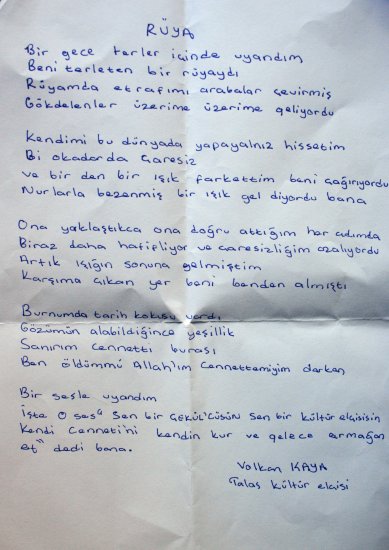 RÜYA
Bir gece terler içinde uyandım
Beni terleten bir rüyaydı
Rüyamda etrafımı arabalar çevirmiş
Gökdelenler üzerime üzerime geliyordu
Kendimi bu dünyada yapayalnız hissetim
Bi okadarda çaresiz
ve bir den bir ışık farkettim beni çağırıyordu
Nurlarla bezenmiş bir ışık gel diyordu bana
Ona yaklaştıkca ona doğru attığım her adımda
Biraz daha hafifliyor ve çaresizliğim azalıyordu
Artık ışığın sonuna gelmiştim
Karşıma çıkan yer beni benden almıştı
Burnumda tarih kokusu vardı
Gözümün alabildiğince yeşillik
Sanırım cennetti burası
Ben öldümmü Allah'ım Cennettemiyim derken
Bir sesle uyandım
İşte O ses" Sen bir ÇEKÜL'CÜSÜN Sen bir kültür elçisisin
Kendi Cenneti'ni kendin kur ve gelece armağan
et" dedi bana.
Volkan KAYA
Talas kültür elçisi